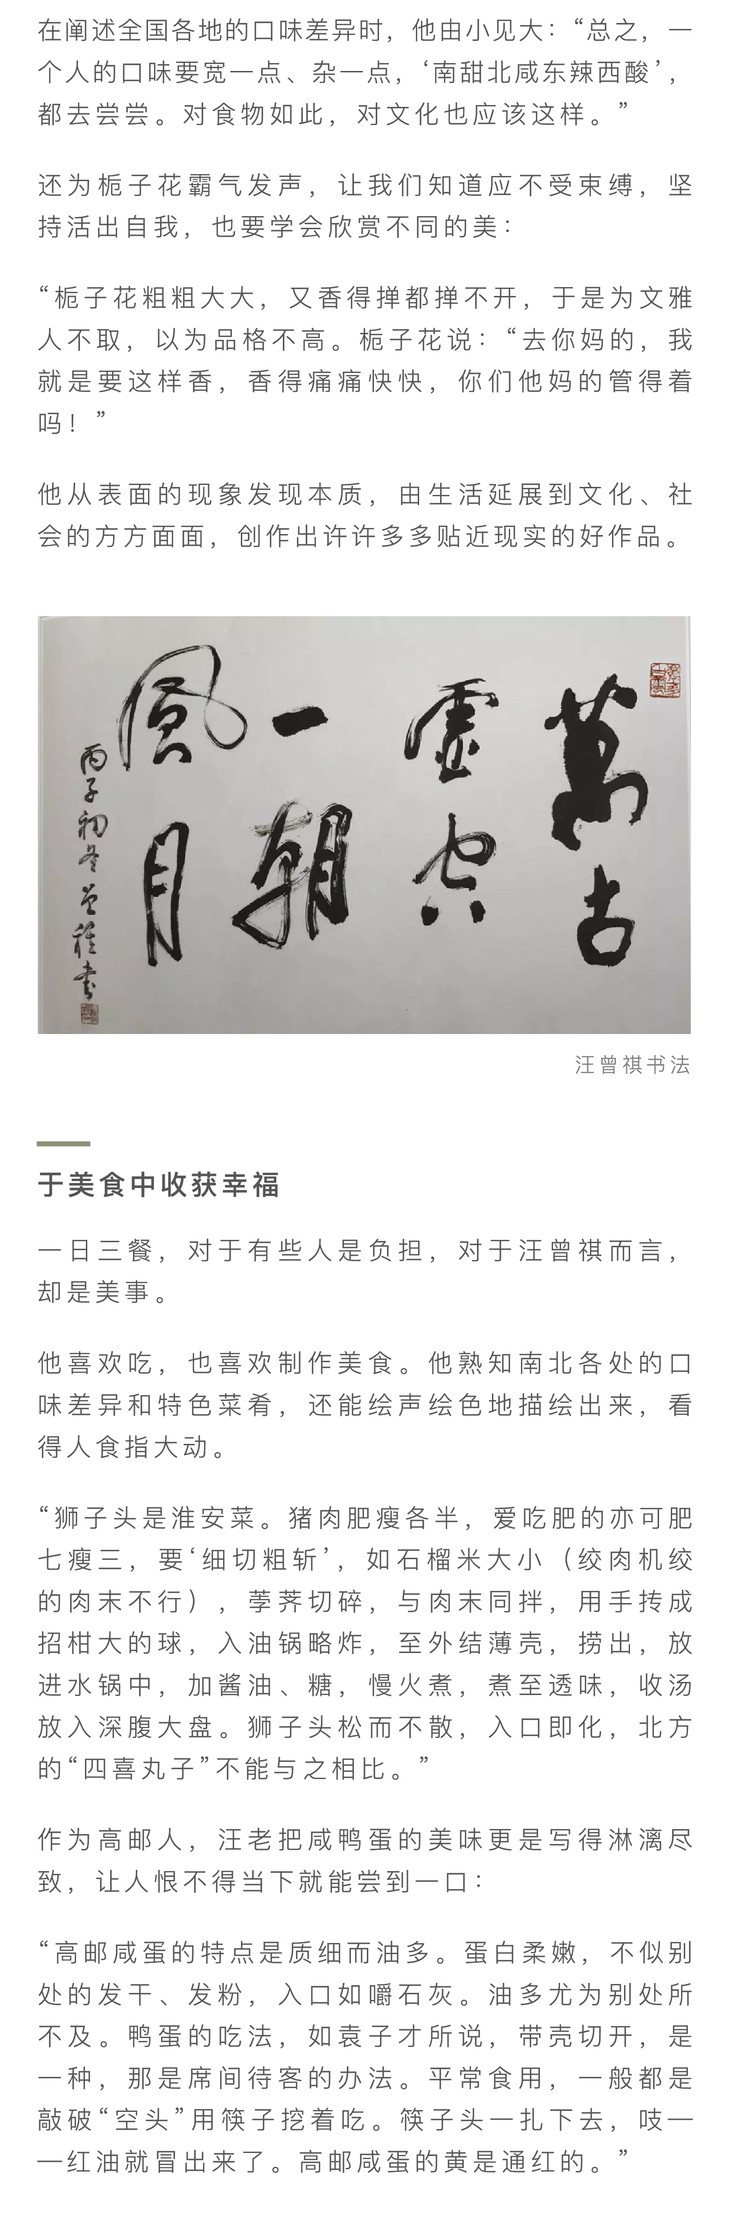 在阐述全国各地的口味差异时，他由小见大：“总之，一
个人的口味要宽一点、杂一点，‘南甜北咸东辣西酸’，
都去尝尝。对食物如此，对文化也应该这样。”
还为栀子花霸气发声，让我们知道应不受束缚，坚
持活出自我，也要学会欣赏不同的美：
“栀子花粗粗大大，又香得掸都掸不开，于是为文雅
人不取，以为品格不高。栀子花说：“去你妈的，我
就是要这样香，香得痛痛快快，你们他妈的管得着
吗！”
他从表面的现象发现本质，由生活延展到文化、社
会的方方面面，创作出许许多多贴近现实的好作品。
萬古
虚空
一朝
風月
丙子初冬曾祺书
汪曾祺书法
于美食中收获幸福
一日三餐，对于有些人是负担，对于汪曾祺而言，
却是美事。
他喜欢吃，也喜欢制作美食。他熟知南北各处的口
味差异和特色菜肴，还能绘声绘色地描绘出来，看
得人食指大动。
“狮子头是淮安菜。猪肉肥瘦各半，爱吃肥的亦可肥
七瘦三，要‘细切粗斩’，如石榴米大小（绞肉机绞
的肉末不行），荸荠切碎，与肉末同拌，用手抟成
招柑大的球，入油锅略炸，至外结薄壳，捞出，放
进水锅中，加酱油、糖，慢火煮，煮至透味，收汤
放入深腹大盘。狮子头松而不散，入口即化，北方
的“四喜丸子”不能与之相比。”
作为高邮人，汪老把咸鸭蛋的美味更是写得淋漓尽
致，让人恨不得当下就能尝到一口：
“高邮咸蛋的特点是质细而油多。蛋白柔嫩，不似别
处的发干、发粉，入口如嚼石灰。油多尤为别处所
不及。鸭蛋的吃法，如袁子才所说，带壳切开，是
一种，那是席间待客的办法。平常食用，一般都是
敲破“空头”用筷子挖着吃。筷子头一扎下去，吱—
—红油就冒出来了。高邮咸蛋的黄是通红的。”